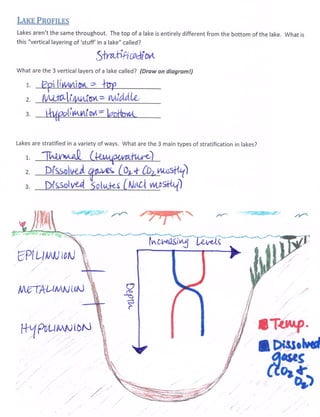 LAKE PROFILES
Lakes aren't the same throughout. The top of a lake is entirely different from the bottom of the lake. What is
this "vertical layering of 'stuff' in a lake" called?
Stratification
What are the 3 vertical layers of a lake called? (Draw on diagram!)
1. Epilimnion = top
2. Metalimnion = middle
3. Hypolimnion = bottom
Lakes are stratified in a variety of ways. What are the 3 main types of stratification in lakes?
1. Thermal (temperature)
2. Dissolved gases (O₂ + CO₂ mostly)
3. Dissolved solutes (NaCl mostly)
Increasing Levels
EPILIMNION
METALIMNION
Depth
HYPOLIMNION
Temp.
Dissolved
gases
(CO₂ +
O₂)